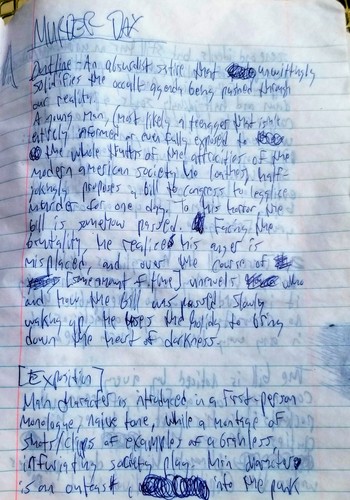 MURDER DAY
Outline - An absurdist satire that unwittingly
solidifies the occult agenda being pushed through
our reality.
A young man, (most likely a teenager that isn't
entirely informed or even fully exposed to
the whole truth of the atrocities of the
modern american society he loathes, half-
jokingly proposes a bill to congress to legalize
murder for one day. To his horror, the
bill is somehow passed. Facing the
brutality he realizes his anger is
misplaced, and over the course of
[ of time] unravels who
and how the bill was passed. Slowly
waking up he uses the holiday to bring
down the heart of darkness.
[Exposition]
Main character is introduced in a first-person
monologue, naive tone, while a montage of
shots/clips of examples of a brainless,
infuriating society play. Main character
is an outcast into the punk